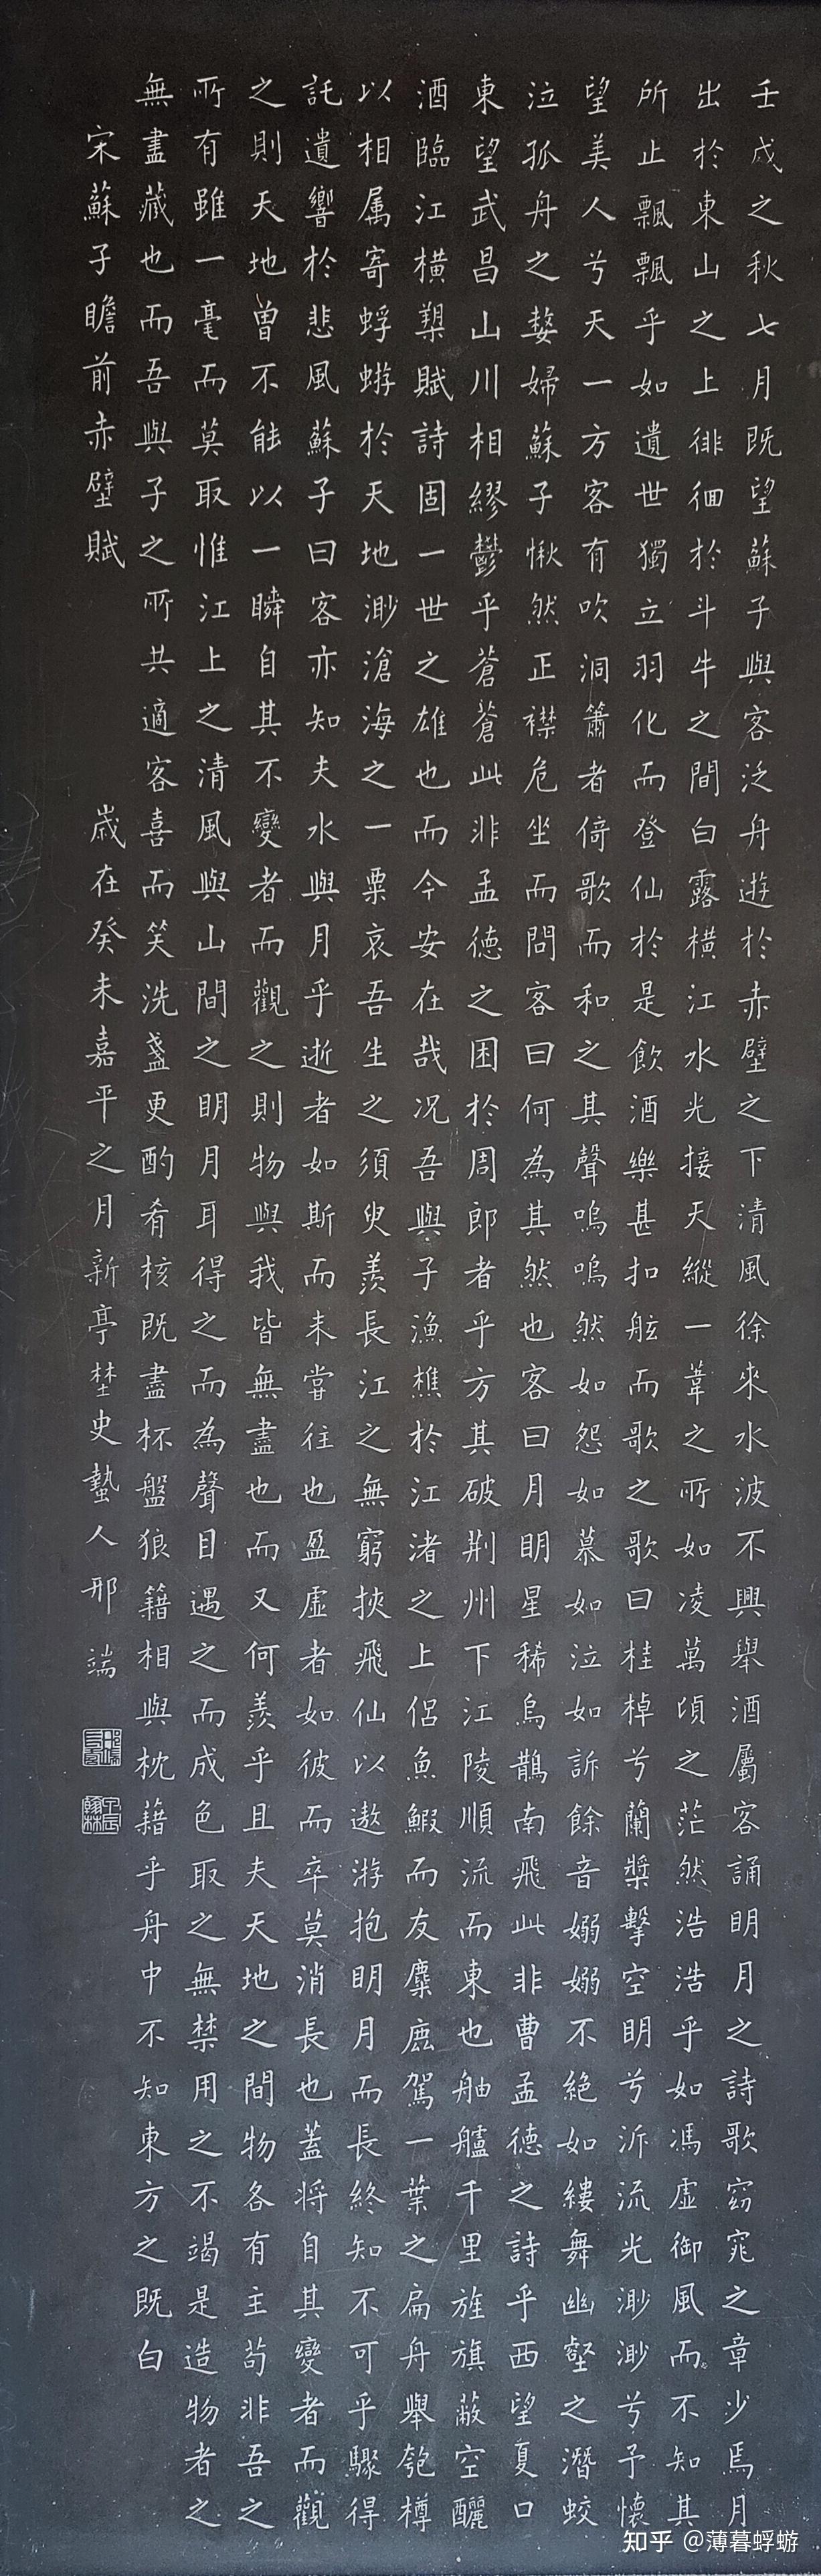 壬戌之秋七月既望蘇子與客泛舟遊於赤壁之下清風徐來水波不興舉酒屬客誦明月之詩歌窈窕之章少焉月
出於東山之上徘徊於斗牛之間白露橫江水光接天縱一葦之所如凌萬頃之茫然浩浩乎如馮虛御風而不知其
所止飄飄乎如遺世獨立羽化而登仙於是飲酒樂甚扣舷而歌之歌曰桂棹兮蘭槳擊空明兮泝流光渺渺兮予懷
望美人兮天一方客有吹洞簫者倚歌而和之其聲嗚嗚然如怨如慕如泣如訴餘音嫋嫋不絕如縷舞幽壑之潛蛟
泣孤舟之嫠婦蘇子愀然正襟危坐而問客曰何為其然也客曰月明星稀烏鵲南飛此非曹孟德之詩乎西望夏口
東望武昌山川相繆鬱乎蒼蒼此非孟德之困於周郎者乎方其破荆州下江陵順流而東也舳艫千里旌旗蔽空釃
酒臨江橫槊賦詩固一世之雄也而今安在哉况吾與子漁樵於江渚之上侶魚鰕而友麋鹿駕一葉之扁舟舉匏樽
以相属寄蜉蝣於天地渺滄海之一粟哀吾生之須臾羨長江之無窮挾飛仙以遨游抱明月而長終知不可乎驟得
託遺響於悲風蘇子曰客亦知夫水與月乎逝者如斯而未嘗往也盈虛者如彼而卒莫消長也蓋將自其變者而觀
之則天地曾不能以一瞬自其不變者而觀之則物與我皆無盡也而又何羨乎且夫天地之間物各有主苟非吾之
所有雖一毫而莫取惟江上之清風與山間之明月耳得之而為聲目遇之而成色取之無禁用之不竭是造物者之
無盡藏也而吾與子之所共適客喜而笑洗盞更酌肴核既盡杯盤狼籍相與枕藉乎舟中不知東方之既白
宋蘇子瞻前赤壁賦 歲在癸未嘉平之月新亭埜史蟄人邢端
知乎 @薄暮蜉蝣